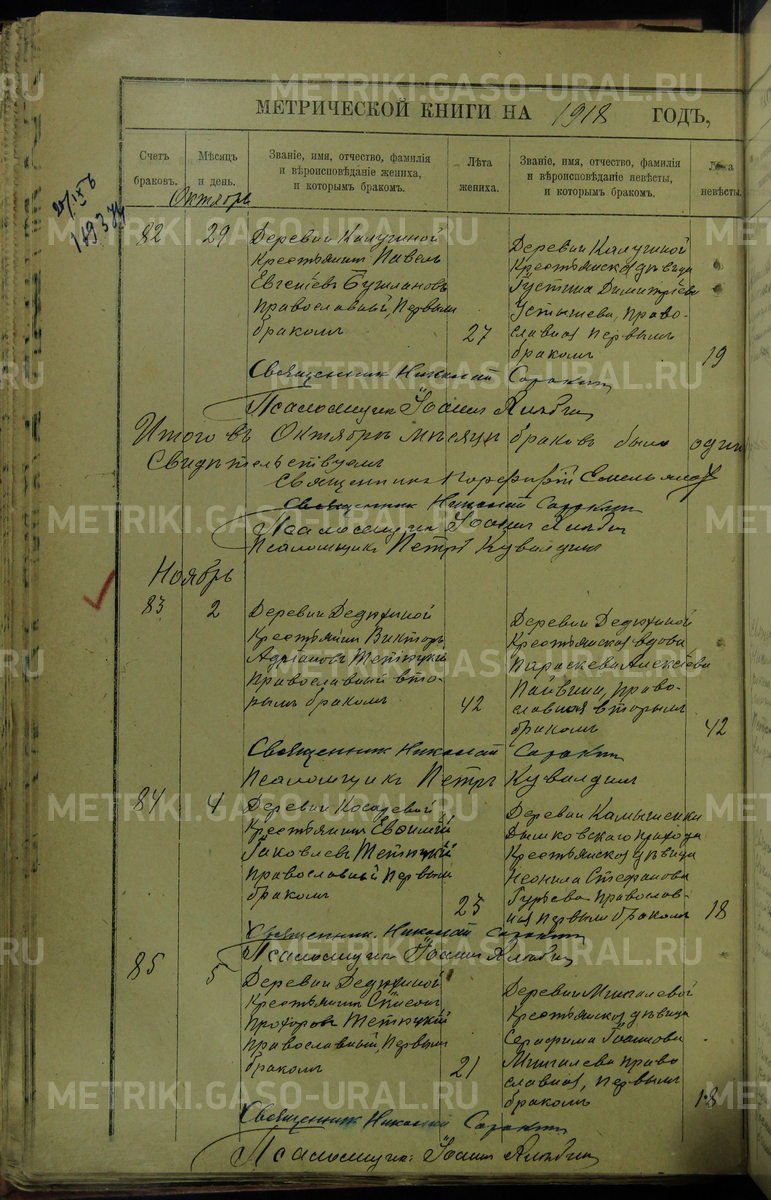 МЕТРИЧЕСКОЙ КНИГИ НА 1918 ГОДЪ,
Счетъ браковъ.
Мѣсяцъ и день.
Званіе, имя, отчество, фамилія и вѣроисповѣданіе жениха, и которымъ бракомъ.
Лѣта жениха.
Званіе, имя, отчество, фамилія и вѣроисповѣданіе невѣсты, и которымъ бракомъ.
невѣсты.
Октябрь
82 29
Деревни Калугиной
крестьянинъ Павелъ
Евгеніевъ
православный, первымъ
бракомъ
27
Деревни Калугиной
крестьянская дѣвица
Іустина Димитріева
право-
славная первымъ
бракомъ
19
Священник Николай Сорокин
Псаломщик Іоанн
Итого въ Октябрѣ мѣсяцѣ браковъ было один
Свидѣтельствуемъ
Священникъ Порфирій Емельянов
Священник Николай Сорокин
Псаломщик Іоанн
Псаломщикъ Петръ Кувалдинъ
Ноябрь
83 2
Деревни Дедюхиной
крестьянинъ Викторъ
Адріановъ
православный вто-
рымъ бракомъ
42
Деревни Дедюхиной
крестьянская вдова
Параскева Алексіева
право-
славная вторымъ
бракомъ
42
Священник Николай Сорокин
Псаломщикъ Петръ Кувалдинъ
84 4
Деревни
крестьянинъ Евѳимій
Іаковлевъ
православный первымъ
бракомъ
23
Деревни Камышенки
прихода
крестьянская дѣвица
Неонила Стефанова
Гурьева православ-
ная первымъ бракомъ
18
Священник Николай Сорокин
Псаломщик Іоанн
85 5
Деревни Дедюхиной
крестьянинъ
Прохоровъ
православный первымъ
бракомъ
21
Деревни Мингалевой
крестьянская дѣвица
Серафима Іоаннова
Мингалева право
славная, первымъ
бракомъ
18
Священник Николай Сорокин
Псаломщик Іоанн
METRIKI.GASO-URAL.RU